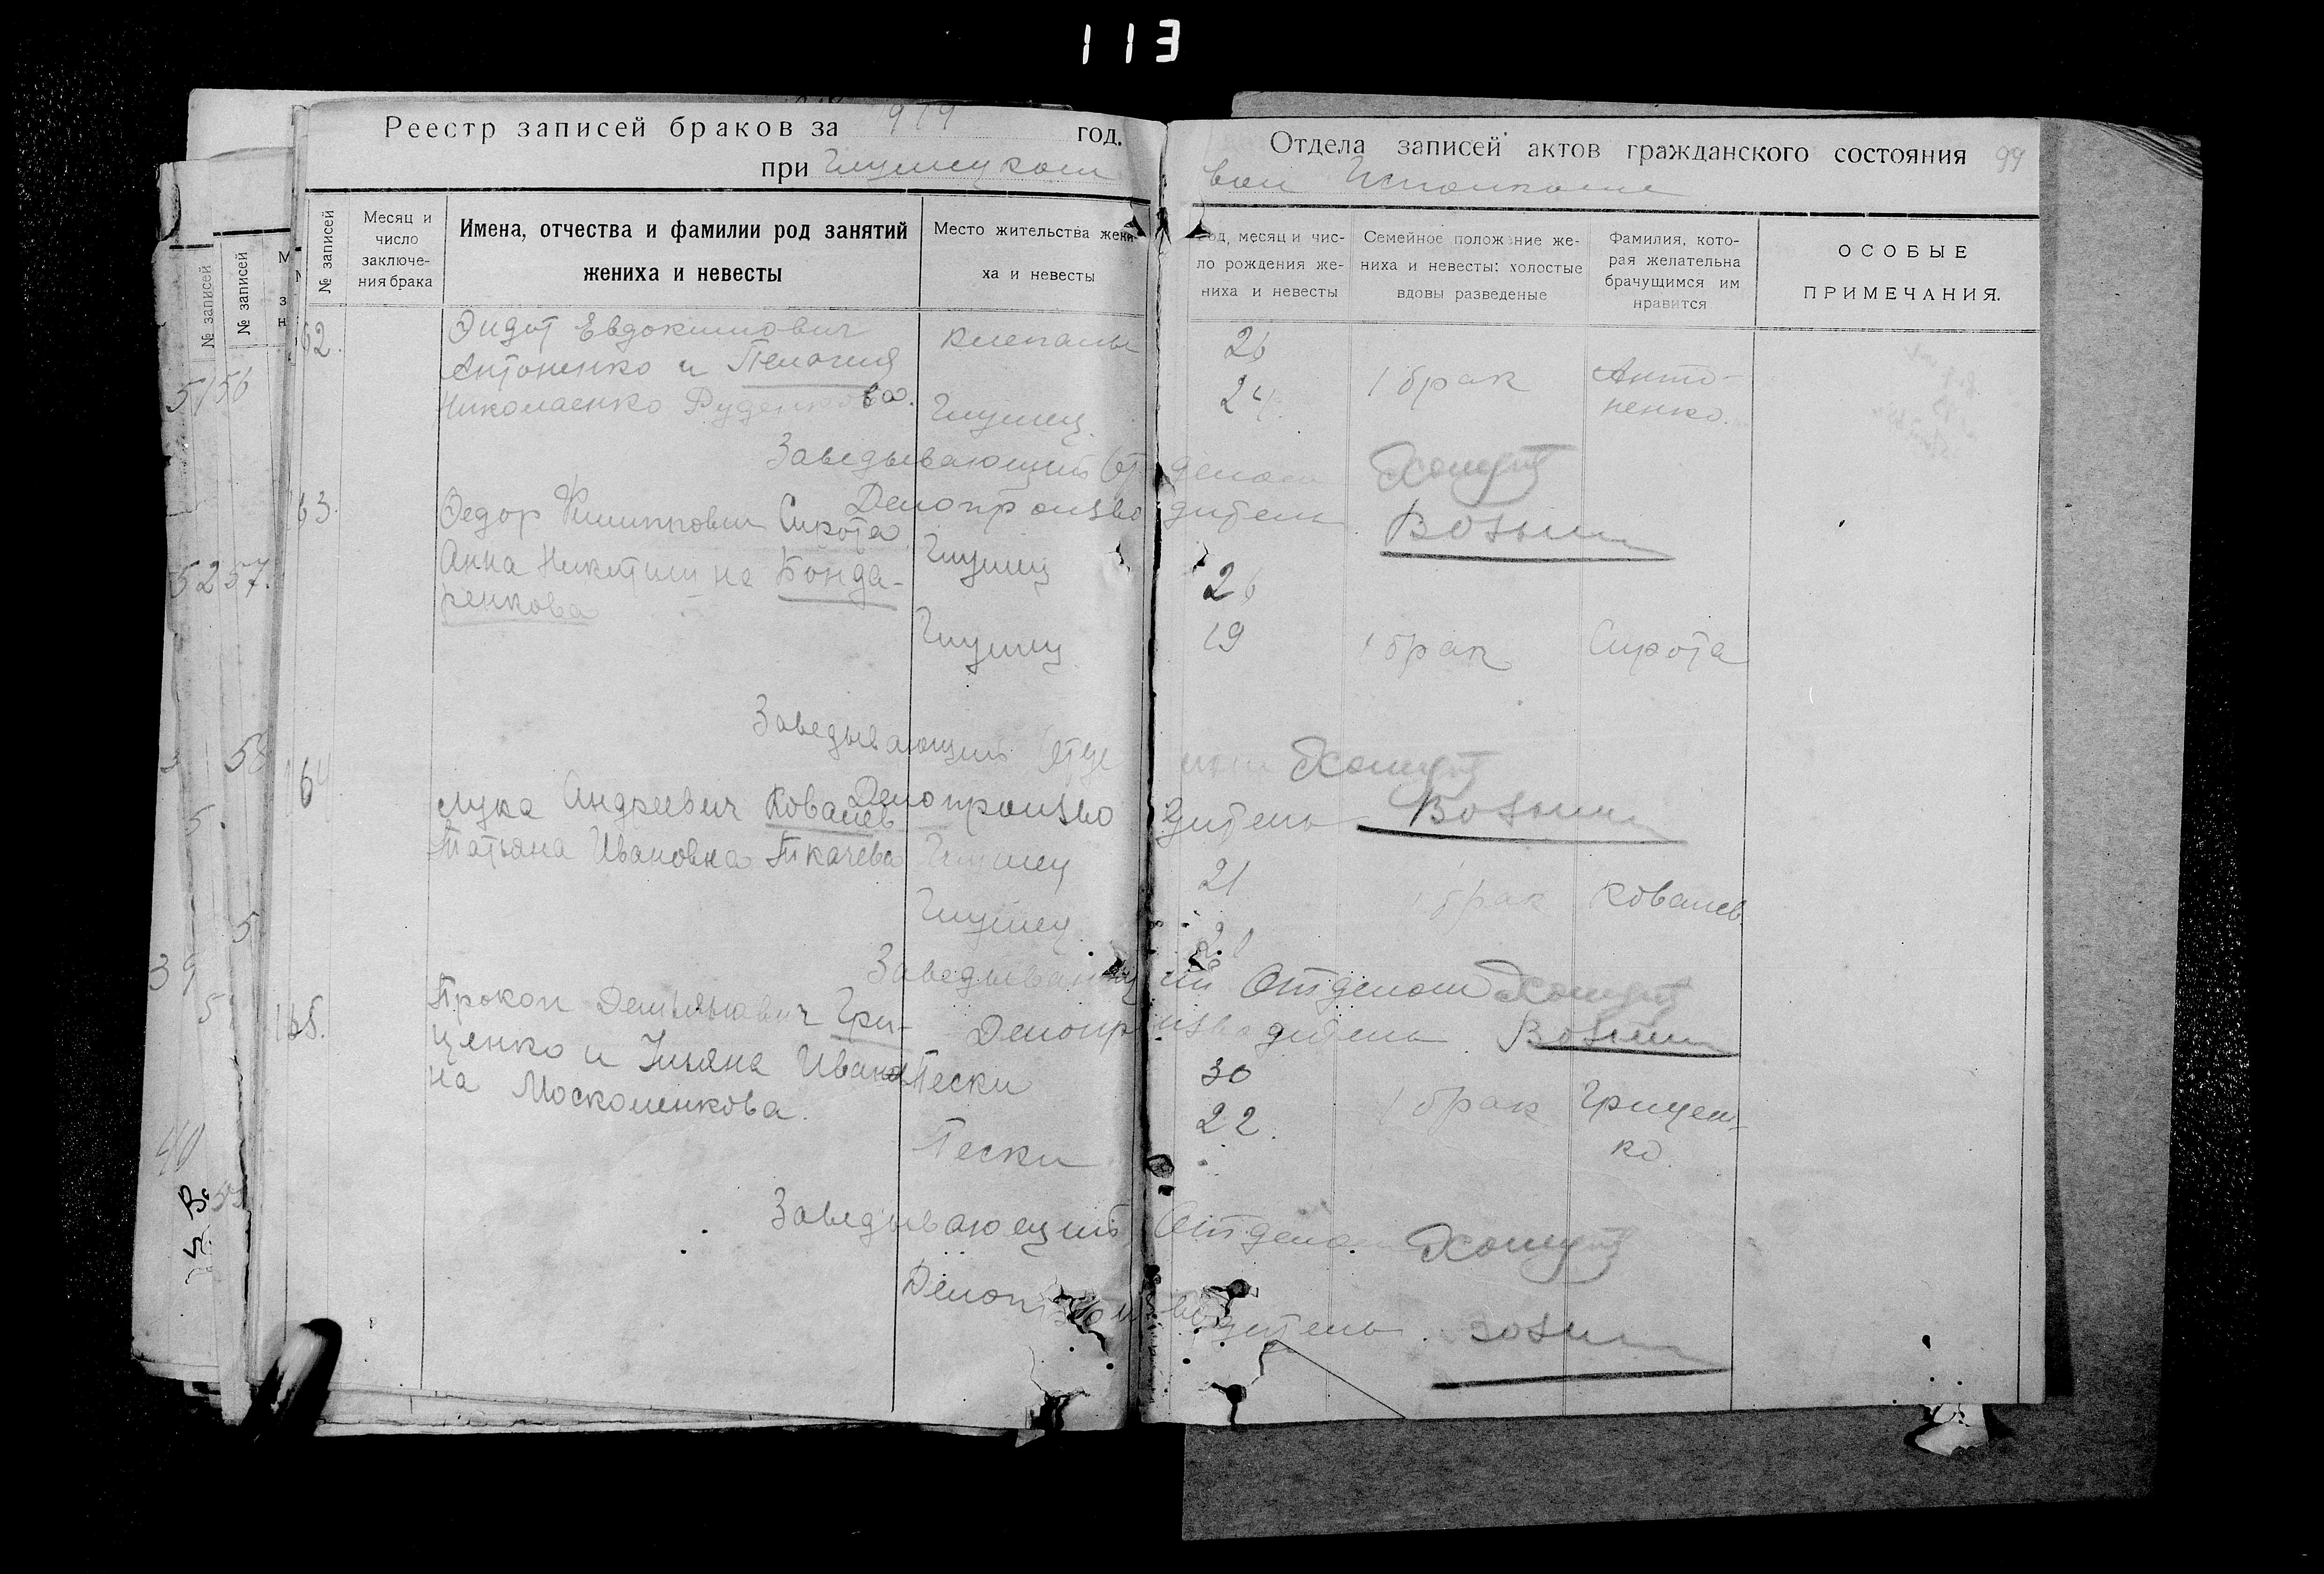 113
Реестр записей браков за 1919 год.
при Глушецком
Отдела записей актов гражданского состояния 99
вол Исполкоме
№ записей
№ записей
№ записей
Месяц и число заключения брака
Имена, отчества и фамилии род занятий жениха и невесты
Место жительства жениха и невесты
од, месяц и число рождения жениха и невесты
Семейное положение жениха и невесты: холостые вдовы разведеные
Фамилия, которая желательна брачущимся им нравится
ОСОБЫЕ ПРИМЕЧАНИЯ.
62.
Федот Евдокимович
Антоненко и Пелогия
Николаенко Руденкова.
Клепалы
Глушец
26
24
1 брак
Антоненко.
Заведывающий Отделом
Делопроизводитель
63.
Федор Филиппович Сирота
Анна Никитишна Бонда-
ренкова
Глушец
Глушец
26
19
1 брак
Сирота
Заведывающий Отде лом
Делопроизводитель
64
Лука Андреевич Ковалев
Татьяна Ивановна Ткачева
Глушец
Глушец
21
1 брак
Ковалев
Заведывающий Отделом
Делопроизводитель
165.
Прокоп Демьянович Гри-
ценко и Ульяна Иванов
на Москаленкова.
Пески
Пески
30
22.
1 брак
Грицен-
ко.
Заведывающий Отделом
Делопроизводитель
51 56
52 57.
58
5.
5
39
40